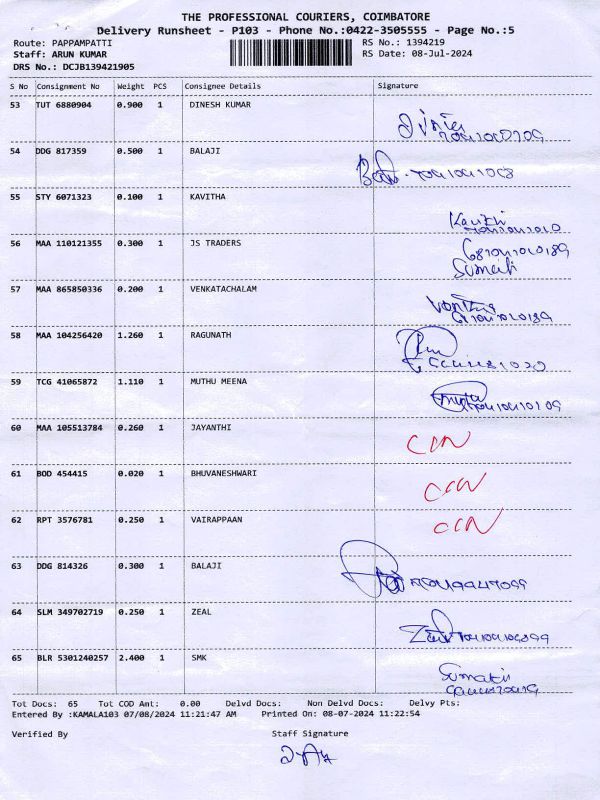 THE PROFESSIONAL COURIERS, COIMBATORE
Delivery Runsheet - P103 - Phone No.:0422-3505555 - Page No.:5
Route: PAPPAMPATTI RS No.: 1394219
Staff: ARUN KUMAR RS Date: 08-Jul-2024
DRS No.: DCJB139421905
S No Consignment No Weight PCS Consignee Details Signature
53 TUT 6880904 0.900 1 DINESH KUMAR
54 DDG 817359 0.500 1 BALAJI
55 STY 6071323 0.100 1 KAVITHA
56 MAA 110121355 0.300 1 JS TRADERS
Sumati
57 MAA 865850336 0.200 1 VENKATACHALAM
58 MAA 104256420 1.260 1 RAGUNATH
59 TCG 41065872 1.110 1 MUTHU MEENA
60 MAA 105513784 0.260 1 JAYANTHI
61 BOD 454415 0.020 1 BHUVANESHWARI
62 RPT 3576781 0.250 1 VAIRAPPAAN
63 DDG 814326 0.300 1 BALAJI
64 SLM 349702719 0.250 1 ZEAL
65 BLR 5301240257 2.400 1 SMK
Tot Docs: 65 Tot COD Amt: 0.00 Delvd Docs: Non Delvd Docs: Delvy Pts:
Entered By :KAMALA103 07/08/2024 11:21:47 AM Printed On: 08-07-2024 11:22:54
Verified By Staff Signature